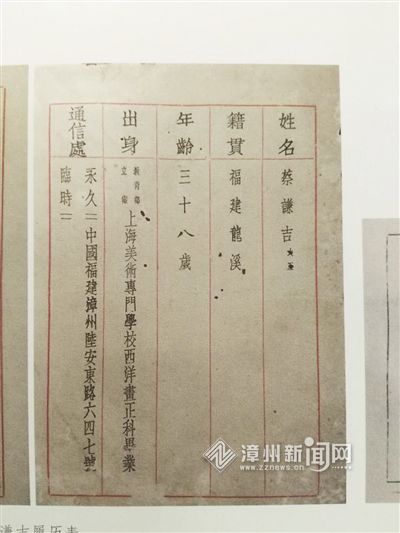 姓名 蔡謙吉
籍貫 福建龍溪
年齡 三十八歲
出身 教育部立案 上海美術專門學校西洋畫正科畢業
通信處 永久 中國福建漳州陸安東路六四七號
臨時
漳州新闻网
www.zznews.cn